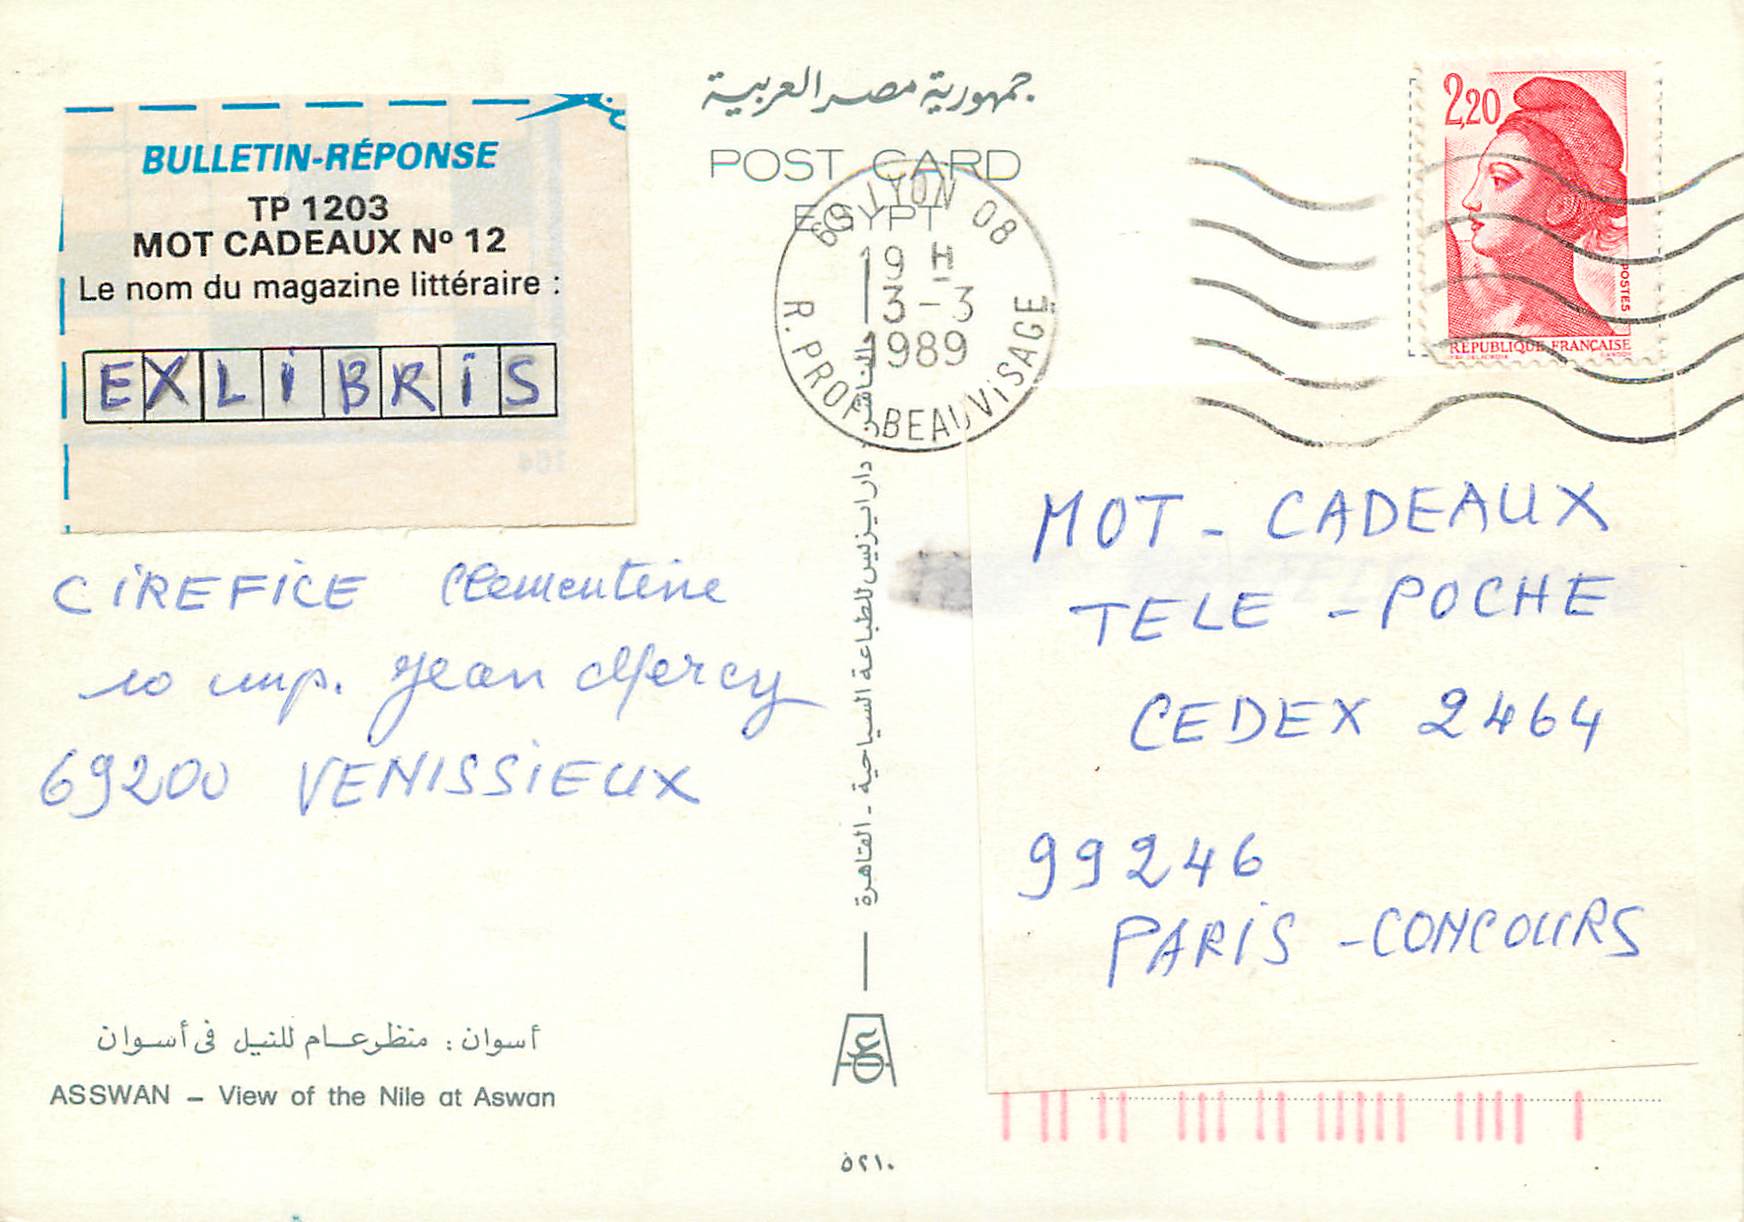 BULLETIN-RÉPONSE
TP 1203
MOT CADEAUX Nº 12
Le nom du magazine littéraire :
EXLIBRIS
CIREFICE Clementine
10 imp. Jean Mercy
69200 VENISSIEUX
أسوان : منظر عام للنيل فى أسوان
ASSWAN – View of the Nile at Aswan
جمهورية مصر العربية
POST CARD
EGYPT
69 LYON 08
19 H
3-3
1989
R. PROF. BEAUVISAGE
دار ايزيس للطباعة السياحية - القاهرة
٥٢١٠
2,20
POSTES
RÉPUBLIQUE FRANÇAISE
MOT - CADEAUX
TELE - POCHE
CEDEX 2464
99246
PARIS - CONCOURS